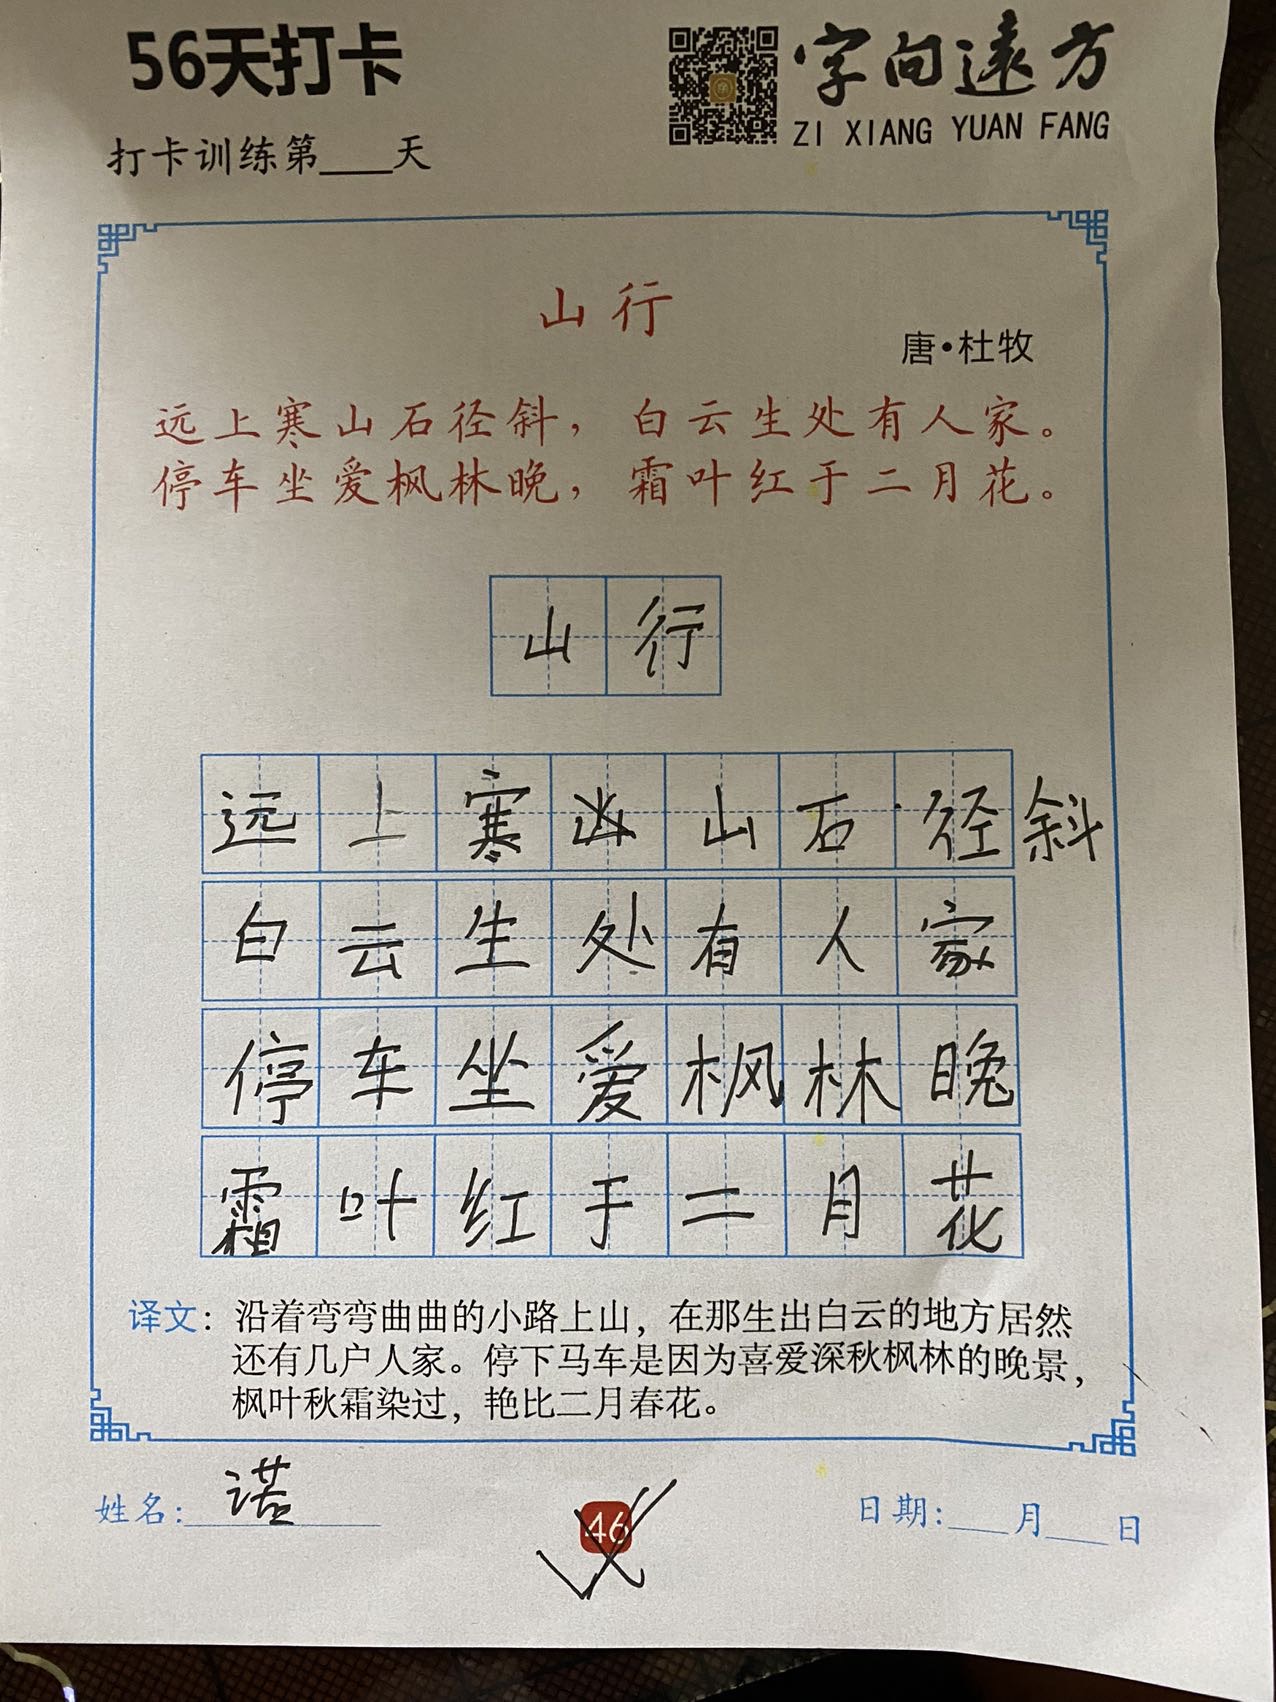 56天打卡
字向远方
ZI XIANG YUAN FANG
打卡训练第___天
山行
唐·杜牧
远上寒山石径斜，白云生处有人家。
停车坐爱枫林晚，霜叶红于二月花。
山行
远上寒山石径斜
白云生处有人家
停车坐爱枫林晚
霜叶红于二月花
译文：沿着弯弯曲曲的小路上山，在那生出白云的地方居然
还有几户人家。停下马车是因为喜爱深秋枫林的晚景，
枫叶秋霜染过，艳比二月春花。
姓名：诺
46
日期：___月___日